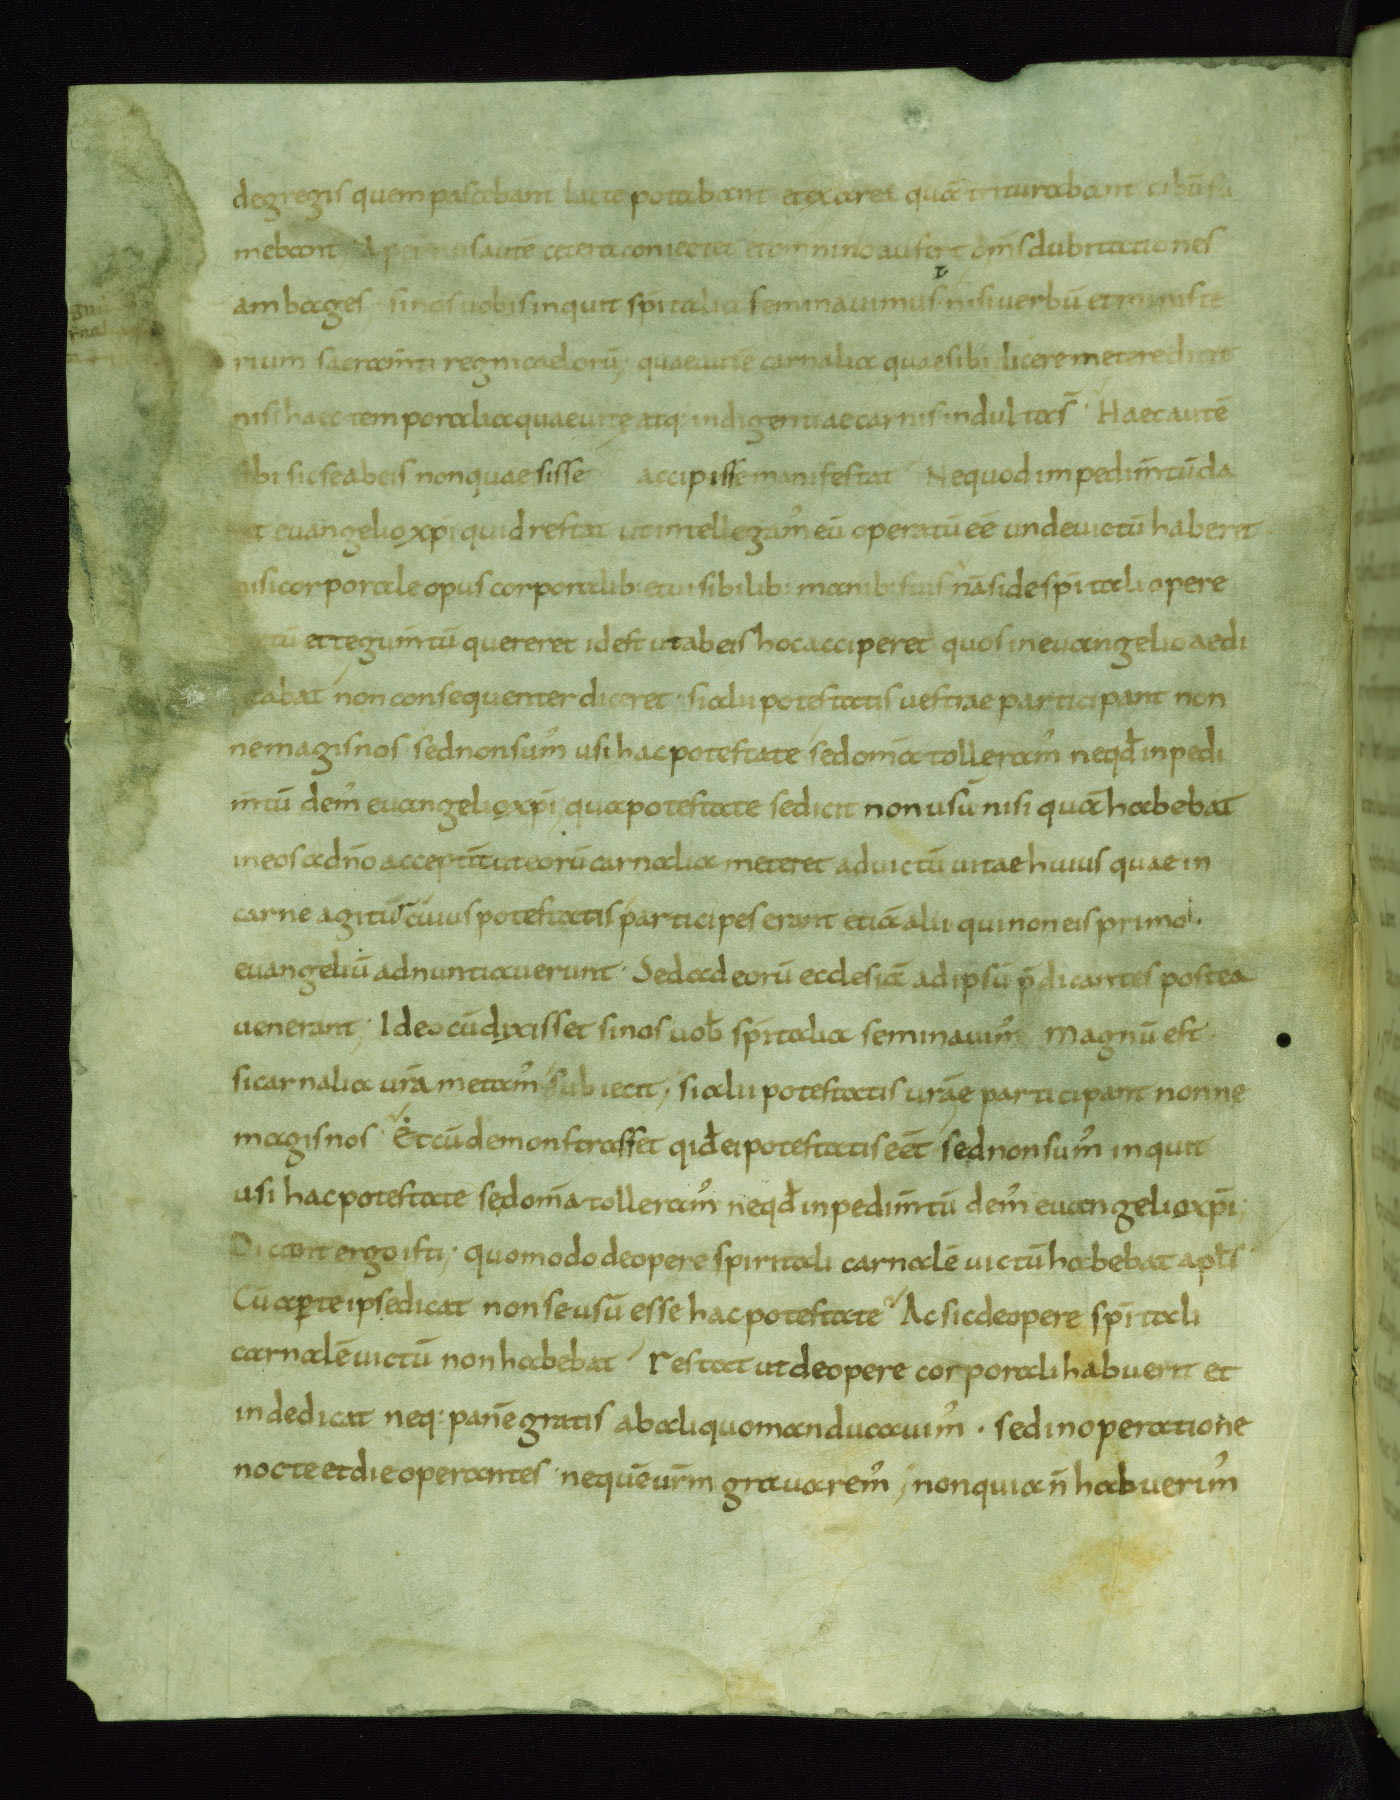 degregis quem pascebant lacte potabant etexarea quā triturabant cibū su
mebant Apertius autē cetera coniectat etomnino aufert om̄s dubitationes
ambages · sinos uobis inquit spītalia seminauimus · nisi uerbū et ministe
rium sacram̄ti regni caelorū; quae autē carnalia quae sibi licere metere dicit
nisi haec temporalia quae uitę atq: indigentiae carnis indulta s̄ · Haec autē
sibi sic se abeis non quaesisse accipisse manifestat Nequod impedim̄tū da
evangelio xp̄i quid restat ut intellegam̄ eū operatū eē unde uictū haberet
nisi corporale opus corporalib: et uisibilib: manib: suis nā si de spītali opere
et tegum̄tū quereret idest ut abeis hoc acciperet quos in euangelio aedi
cabat non consequenter diceret · si alii potestatis uestrae participant non
ne magis nos · sed non sum̄ usi hac potestate sed om̄a tolleram̄ neqd̄ inpedi
m̄tū dem̄ euangelio xp̄i; qua potestate se dicit non usū nisi quā habebat
in eos a dn̄o acceptā ut eorū carnalia meteret ad uictū uitae huius quae in
carne agitur cuius potestatis participes erant etiā alii qui non eis primo ·
euangeliū adnuntiauerunt · Sed ad eorū ecclesiā ad ipsū p̄dicantes postea
uenerant; Ideo cū dixisset si nos uob̄ spītalia seminauim̄ magnū est ·
si carnalia ur̄a metam̄ subiecit; si alii potestatis ur̄ae participant nonne
magis nos · Et cū demonstrasset qid̄ ei potestatis eēt sed non sum̄ inquit
usi hac potestate sed om̄a tolleram̄ neqd̄ inpedim̄tū dem̄ euangelio xp̄i;
Dicant ergo isti; quomodo de opere spiritali carnalē uictū habebat apl̄s
Cū aperte ipse dicat non se usū esse hac potestate Ac sic de opere spītali
carnalē uictū non habebat restat ut de opere corporali habuerit et
inde dicat neq: panē gratis ab aliquo manducauim̄ · sed in operatione
nocte et die operantes nequē ur̄m grauarem̄; non quia n̄ habuerim̄